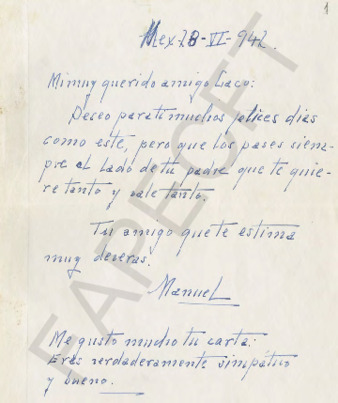 1
Mex. 28-VI-942.
Mi muy querido amigo Caco:
Deseo para ti muchos felices dias
como este, pero que los pases siem-
pre al lado de tu padre que te quie-
re tanto y vale tanto.
Tu amigo que te estima
muy deveras.
Manuel
Me gusto mucho tu carta.
Eres verdaderamente simpático
y bueno.
FAPECFT